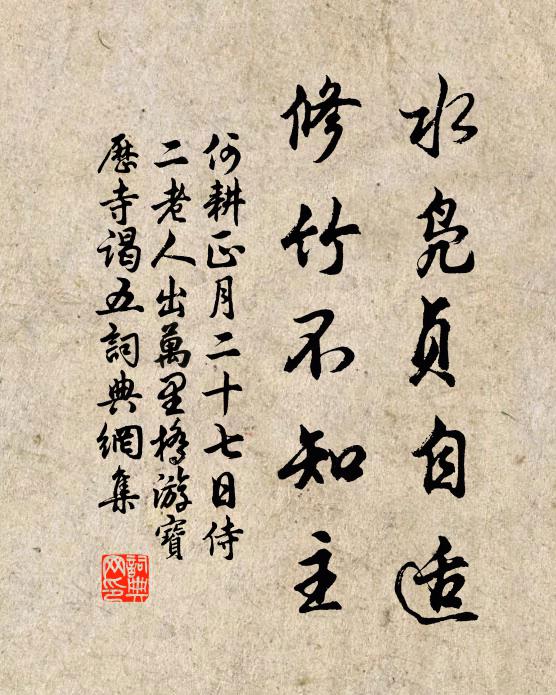 水凫貞自适
修竹不知主
何耕正月二十七日侍
二老人出萬里橋游寶
歷寺谒五詞典網集
詞典
网印